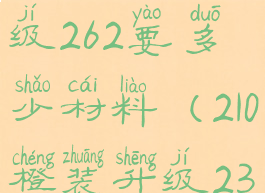 jí yào duō
级262要多
shǎo cái liào
少材料（210
chéng zhuāng shēng jí
橙装升级23